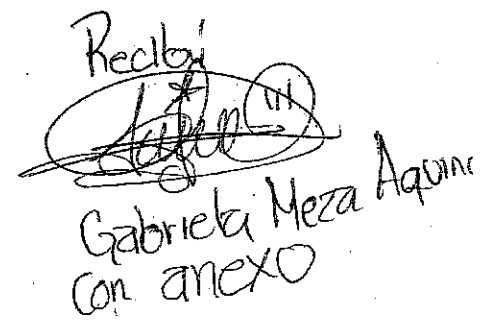 Recibí
Gabriela Meza Aquino
con anexo